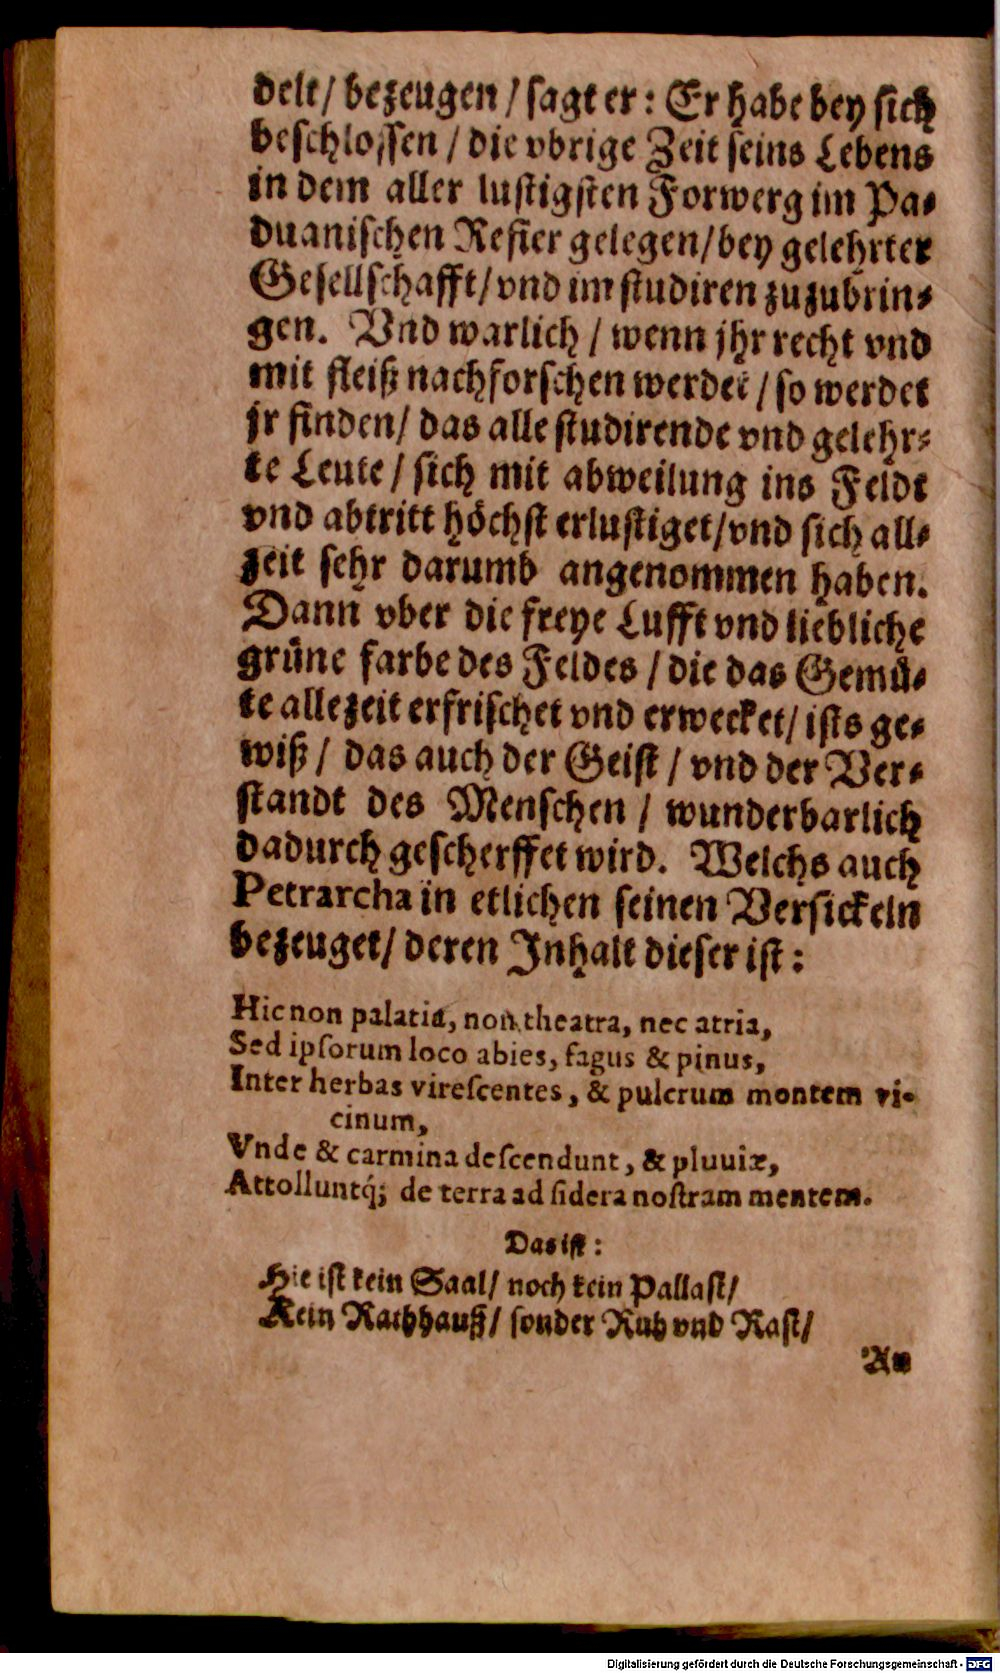 delt/ bezeugen / sagt er: Er habe bey sich
beschlossen / die vbrige Zeit seins Lebens
in dem aller lustigsten Forwerg im Pa-
duanischen Refier gelegen/bey gelehrter
Gesellschafft/ vnd im studiren zuzubrin-
gen. Vnd warlich / wenn jhr recht vnd
mit fleiß nachforschen werdet / so werdet
jr finden/ das alle studirende vnd gelehr-
te Leute / sich mit abweilung ins Feldt
vnd abtritt höchst erlustiget/vnd sich all-
zeit sehr darumb angenommen haben.
Dann vber die freye Lufft vnd liebliche
grüne farbe des Feldes / die das Gemü-
te allezeit erfrischet vnd erwecket/ ists ge-
wiß / das auch der Geist / vnd der Ver-
standt des Menschen / wunderbarlich
dadurch gescherffet wird. Welchs auch
Petrarcha in etlichen seinen Versickeln
bezeuget/ deren Inhalt dieser ist:
Hic non palatia, non theatra, nec atria,
Sed ipsorum loco abies, fagus & pinus,
Inter herbas virescentes, & pulcrum montem vi-
cinum,
Vnde & carmina descendunt, & pluuiæ,
Attolluntq́; de terra ad sidera nostram mentem.
Das ist:
Hie ist kein Saal/ noch kein Pallast/
Kein Rathhauß/ sonder Ruh vnd Rast/
An
Digitalisierung gefördert durch die Deutsche Forschungsgemeinschaft - DFG